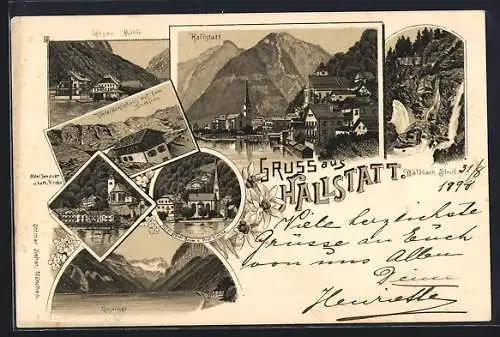 Gosau Mühle
Hallstatt
Hotel Seeauer
u. kath. Kirche
GRUSS aus
HALLSTATT.
Waldbach Strub
31/8
1898
Viele herzlichste
Grüsse an Euch
von uns Allen
Deine
Henriette
Gosausee
Ottmar Zieher, München.